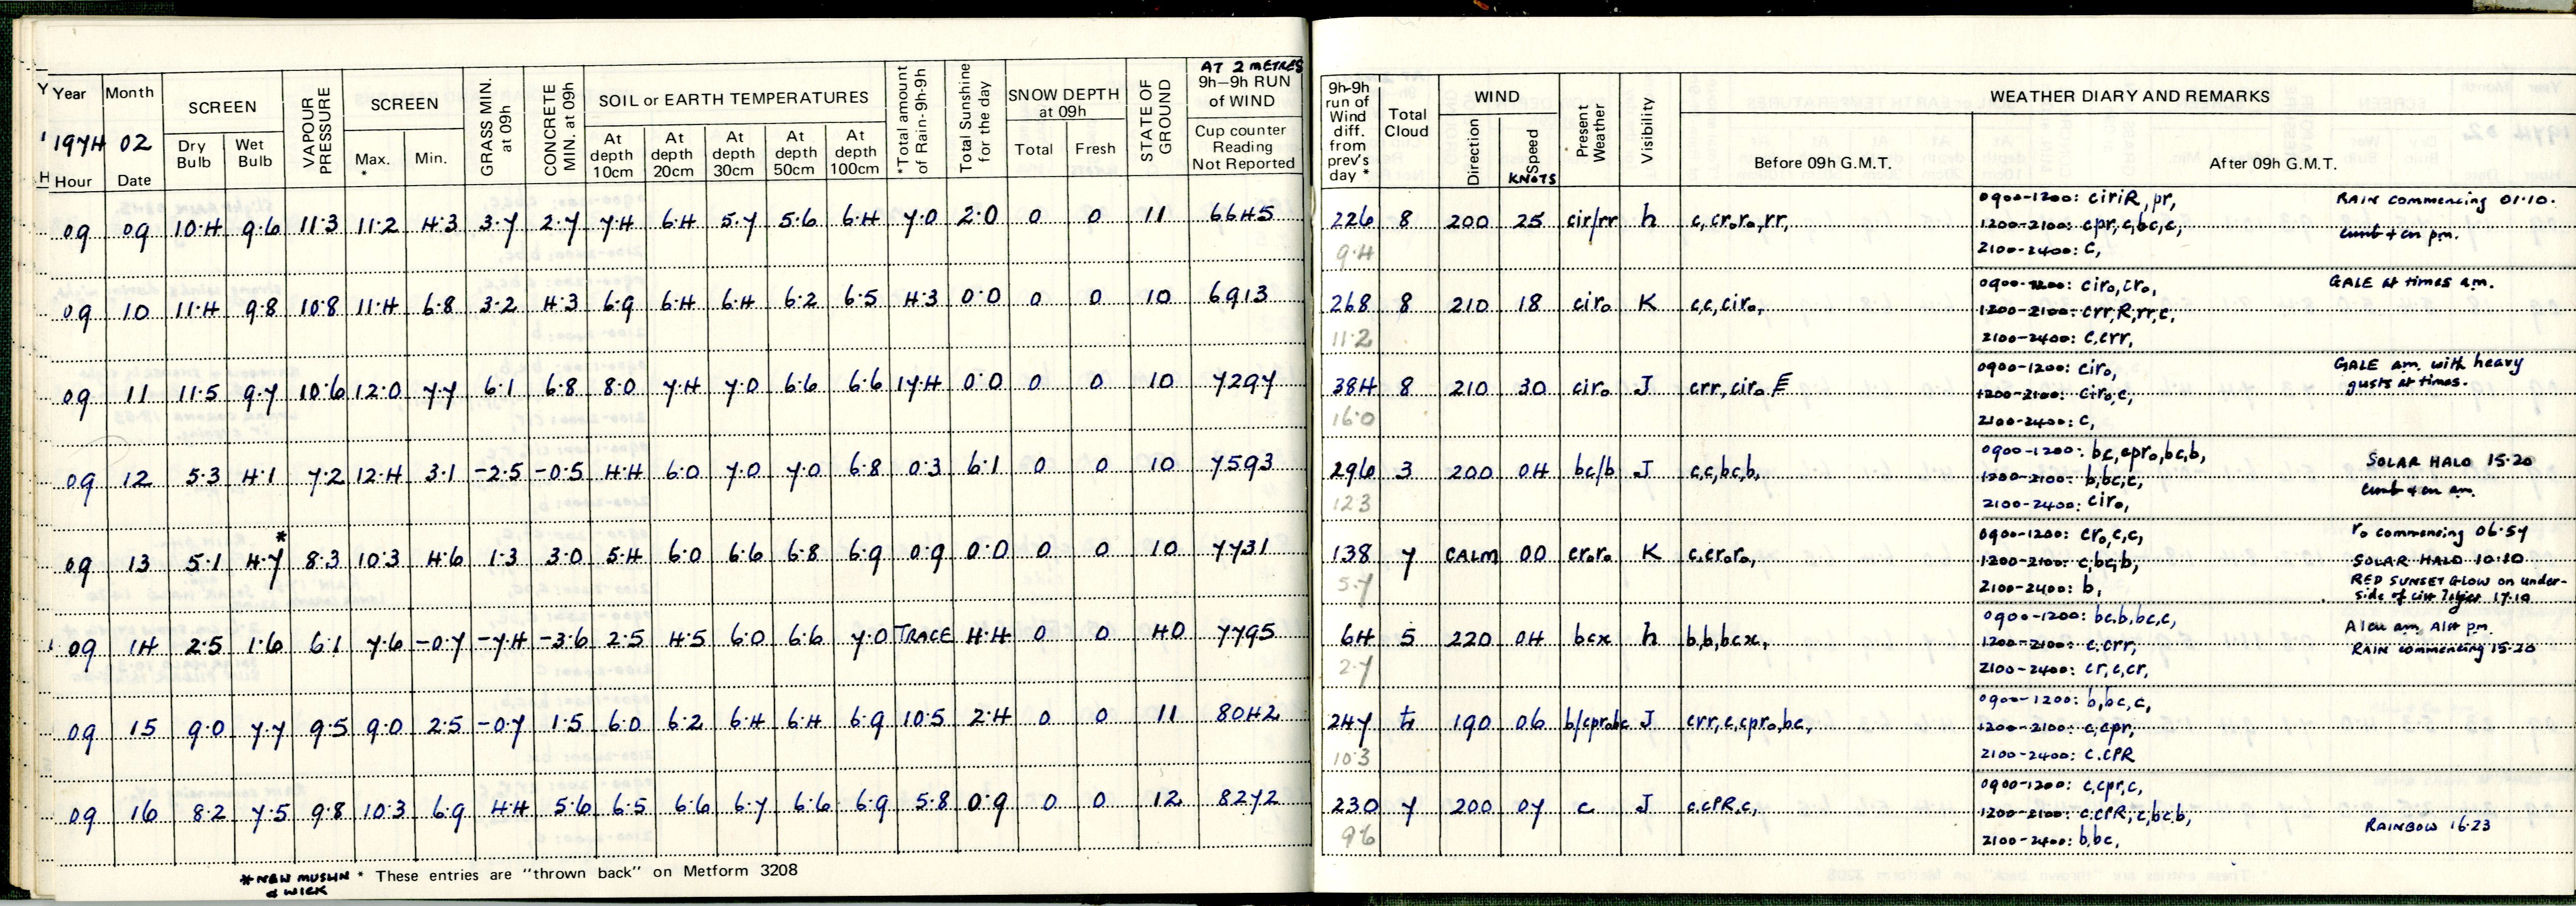 AT 2 METRES
Year Month SCREEN VAPOUR PRESSURE SCREEN GRASS MIN. at 09h CONCRETE MIN. at 09h SOIL or EARTH TEMPERATURES *Total amount of Rain-9h-9h Total Sunshine for the day SNOW DEPTH at 09h STATE OF GROUND 9h–9h RUN of WIND
1974 02 Dry Bulb Wet Bulb Max. * Min. At depth 10cm At depth 20cm At depth 30cm At depth 50cm At depth 100cm Total Fresh Cup counter Reading Not Reported
Hour Date
09 09 10·4 9·6 11·3 11·2 4·3 3·7 2·7 7·4 6·4 5·7 5·6 6·4 7·0 2·0 0 0 11 6645
09 10 11·4 9·8 10·8 11·4 6·8 3·2 4·3 6·9 6·4 6·4 6·2 6·5 4·3 0·0 0 0 10 6913
09 11 11·5 9·7 10·6 12·0 7·7 6·1 6·8 8·0 7·4 7·0 6·6 6·6 17·4 0·0 0 0 10 7297
09 12 5·3 4·1 7·2 12·4 3·1 -2·5 -0·5 4·4 6·0 7·0 7·0 6·8 0·3 6·1 0 0 10 7593
09 13 5·1 4·7* 8·3 10·3 4·6 1·3 3·0 5·4 6·0 6·6 6·8 6·9 0·9 0·0 0 0 10 7731
09 14 2·5 1·6 6·1 7·6 -0·7 -7·4 -3·6 2·5 4·5 6·0 6·6 7·0 TRACE 4·4 0 0 40 7795
09 15 9·0 7·7 9·5 9·0 2·5 -0·7 1·5 6·0 6·2 6·4 6·4 6·9 10·5 2·4 0 0 11 8042
09 16 8·2 7·5 9·8 10·3 6·9 4·4 5·6 6·5 6·6 6·7 6·6 6·9 5·8 0·9 0 0 12 8272
*NEW MUSLIN & WICK
* These entries are "thrown back" on Metform 3208
9h-9h run of Wind diff. from prev's day * Total Cloud WIND Present Weather Visibility WEATHER DIARY AND REMARKS
Direction Speed KNOTS Before 09h G.M.T. After 09h G.M.T.
226 8 200 25 cir/rr h c,cr₀r₀,rr, 0900-1200: ciriR, pr, RAIN commencing 01·10.
1200-2100: cpr, c,bc,c, cumb + cn pm.
9·4 2100-2400: c,
268 8 210 18 cir₀ K c,c,cir₀, 0900-1200: cir₀,cr₀, GALE at times am.
1200-2100: crr,R,rr,c,
11·2 2100-2400: c,crr,
384 8 210 30 cir₀ J crr,cir₀ E 0900-1200: cir₀, GALE am. with heavy
1200-2100: cir₀,c, gusts at times.
16·0 2100-2400: c,
296 3 200 04 bc/b J c,c,bc,b, 0900-1200: bc,cpr₀,bc,b, SOLAR HALO 15·20
1200-2100: b,bc,c, cumb + cn am.
12·3 2100-2400: cir₀,
138 7 CALM 00 cr₀r₀ K c,cr₀r₀, 0900-1200: cr₀,c,c, r₀ commencing 06·57
1200-2100: c,bc,b, SOLAR HALO 10·20
5·7 2100-2400: b, RED SUNSET GLOW on under-
side of cirr layer 17·10
64 5 220 04 bcx h b,b,bcx, 0900-1200: bc,b,bc,c, Alcu am, Alst pm.
1200-2100: c,crr, RAIN commencing 15·20
2·7 2100-2400: cr,c,cr,
247 190 06 b/cpr₀bc J crr,c,cpr₀,bc, 0900-1200: b,bc,c,
1200-2100: c,cpr,
10·3 2100-2400: c,cPR
230 7 200 07 c J c,cPR,c, 0900-1200: c,cpr,c,
1200-2100: c,cPR, c,bc,b,
9·6 2100-2400: b,bc, RAINBOW 16·23